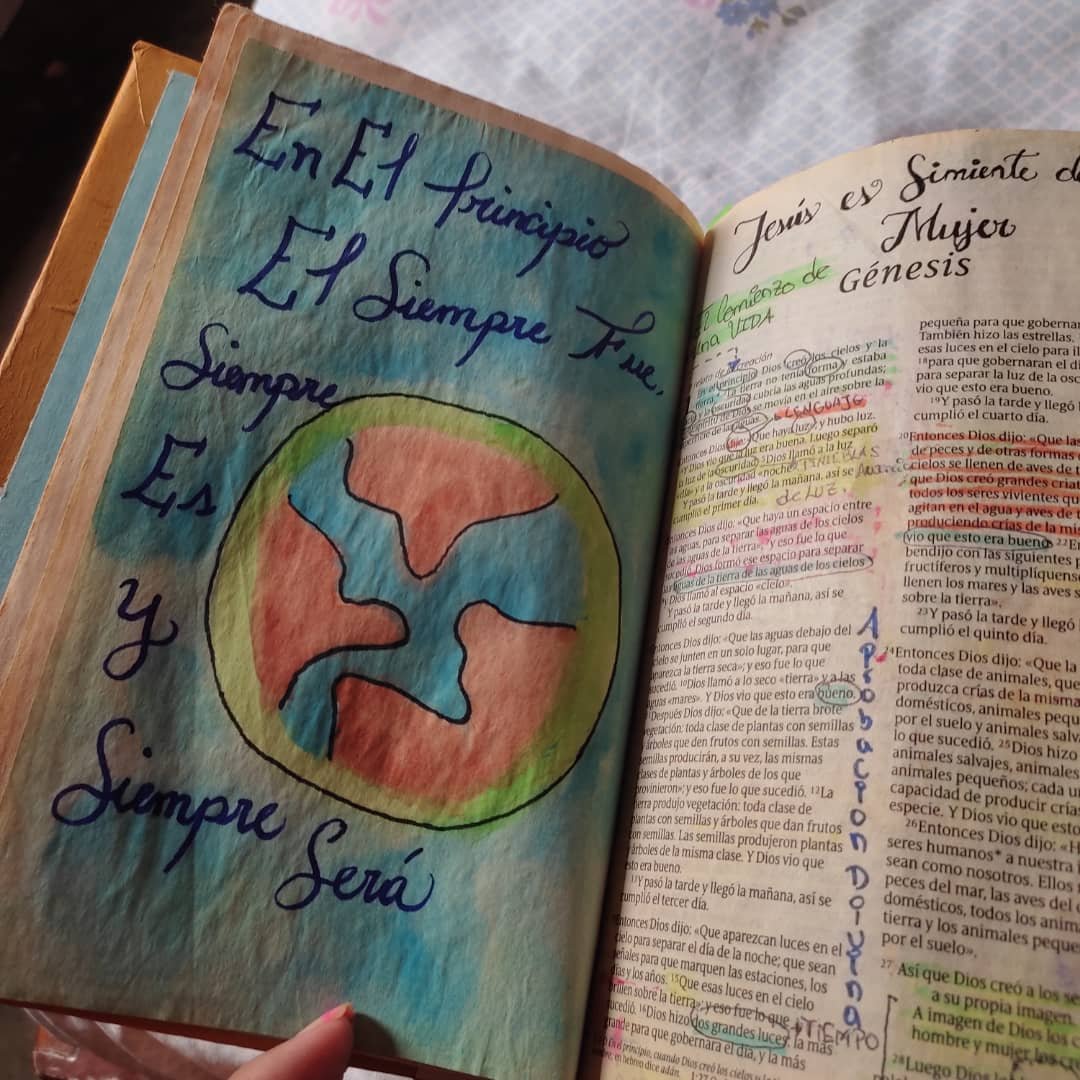 En El Principio
El Siempre Fue,
Siempre
Es
y
Siempre
Será
Jesús es Simiente de
Mujer
Génesis
El Comienzo de
una VIDA
creación
principio Dios creó los cielos y la
tierra. La tierra no tenía forma y estaba
y la oscuridad cubría las aguas profundas;
Espíritu de Dios se movía en el aire sobre la
de las aguas.
LENGUAJE
Entonces Dios dijo: «Que haya luz»; y hubo luz.
Y Dios vio que la luz era buena. Luego separó
la luz de la oscuridad. ⁵Dios llamó a la luz
y a la oscuridad «noche».
TINIEBLAS
Y pasó la tarde y llegó la mañana, así se
cumplió el primer día.
de LUZ
Entonces Dios dijo: «Que haya un espacio entre
las aguas, para separar las aguas de los cielos
de las aguas de la tierra»; ⁷y eso fue lo que
sucedió. Dios formó ese espacio para separar
las aguas de la tierra de las aguas de los cielos
⁸y Dios llamó al espacio «cielo».
Y pasó la tarde y llegó la mañana, así se
cumplió el segundo día.
Entonces Dios dijo: «Que las aguas debajo del
cielo se junten en un solo lugar, para que
aparezca la tierra seca»; y eso fue lo que
sucedió. ¹⁰Dios llamó a lo seco «tierra» y a las
aguas «mares». Y Dios vio que esto era bueno.
Después Dios dijo: «Que de la tierra brote
vegetación: toda clase de plantas con semillas
y árboles que den frutos con semillas. Estas
semillas producirán, a su vez, las mismas
clases de plantas y árboles de los que
provinieron»; y eso fue lo que sucedió. ¹²La
tierra produjo vegetación: toda clase de
plantas con semillas y árboles que dan frutos
con semillas. Las semillas produjeron plantas
y árboles de la misma clase. Y Dios vio que
esto era bueno.
¹³Y pasó la tarde y llegó la mañana, así se
cumplió el tercer día.
Entonces Dios dijo: «Que aparezcan luces en el
cielo para separar el día de la noche; que sean
señales para que marquen las estaciones, los
días y los años. ¹⁵Que esas luces en el cielo
brillen sobre la tierra»; y eso fue lo que
sucedió. ¹⁶Dios hizo dos grandes luces: la más
grande para que gobernara el día, y la más
TIEMPO
En el principio, cuando Dios creó los cielos y la
en hebreo dice adán.
Aprobación Divina
pequeña para que gobernar
También hizo las estrellas.
esas luces en el cielo para il
¹⁸para que gobernaran el dí
para separar la luz de la osc
vio que esto era bueno.
¹⁹Y pasó la tarde y llegó l
cumplió el cuarto día.
²⁰Entonces Dios dijo: «Que la
de peces y de otras formas d
cielos se llenen de aves de t
que Dios creó grandes criat
todos los seres vivientes qu
agitan en el agua y aves de t
produciendo crías de la mis
vio que esto era bueno. ²²En
bendijo con las siguientes p
fructíferos y multiplíquense
llenen los mares y las aves s
sobre la tierra».
²³Y pasó la tarde y llegó
cumplió el quinto día.
²⁴Entonces Dios dijo: «Que la
toda clase de animales, que
produzca crías de la misma
domésticos, animales pequ
por el suelo y animales salv
lo que sucedió. ²⁵Dios hizo
animales salvajes, animales
animales pequeños; cada un
capacidad de producir crías
especie. Y Dios vio que esto
²⁶Entonces Dios dijo: «H
seres humanos* a nuestra
sean como nosotros. Ellos
peces del mar, las aves del c
domésticos, todos los anim
tierra y los animales peque
por el suelo».
²⁷ Así que Dios creó a los se
a su propia imagen.
A imagen de Dios los c
hombre y mujer los cre
²⁸Luego Dios los